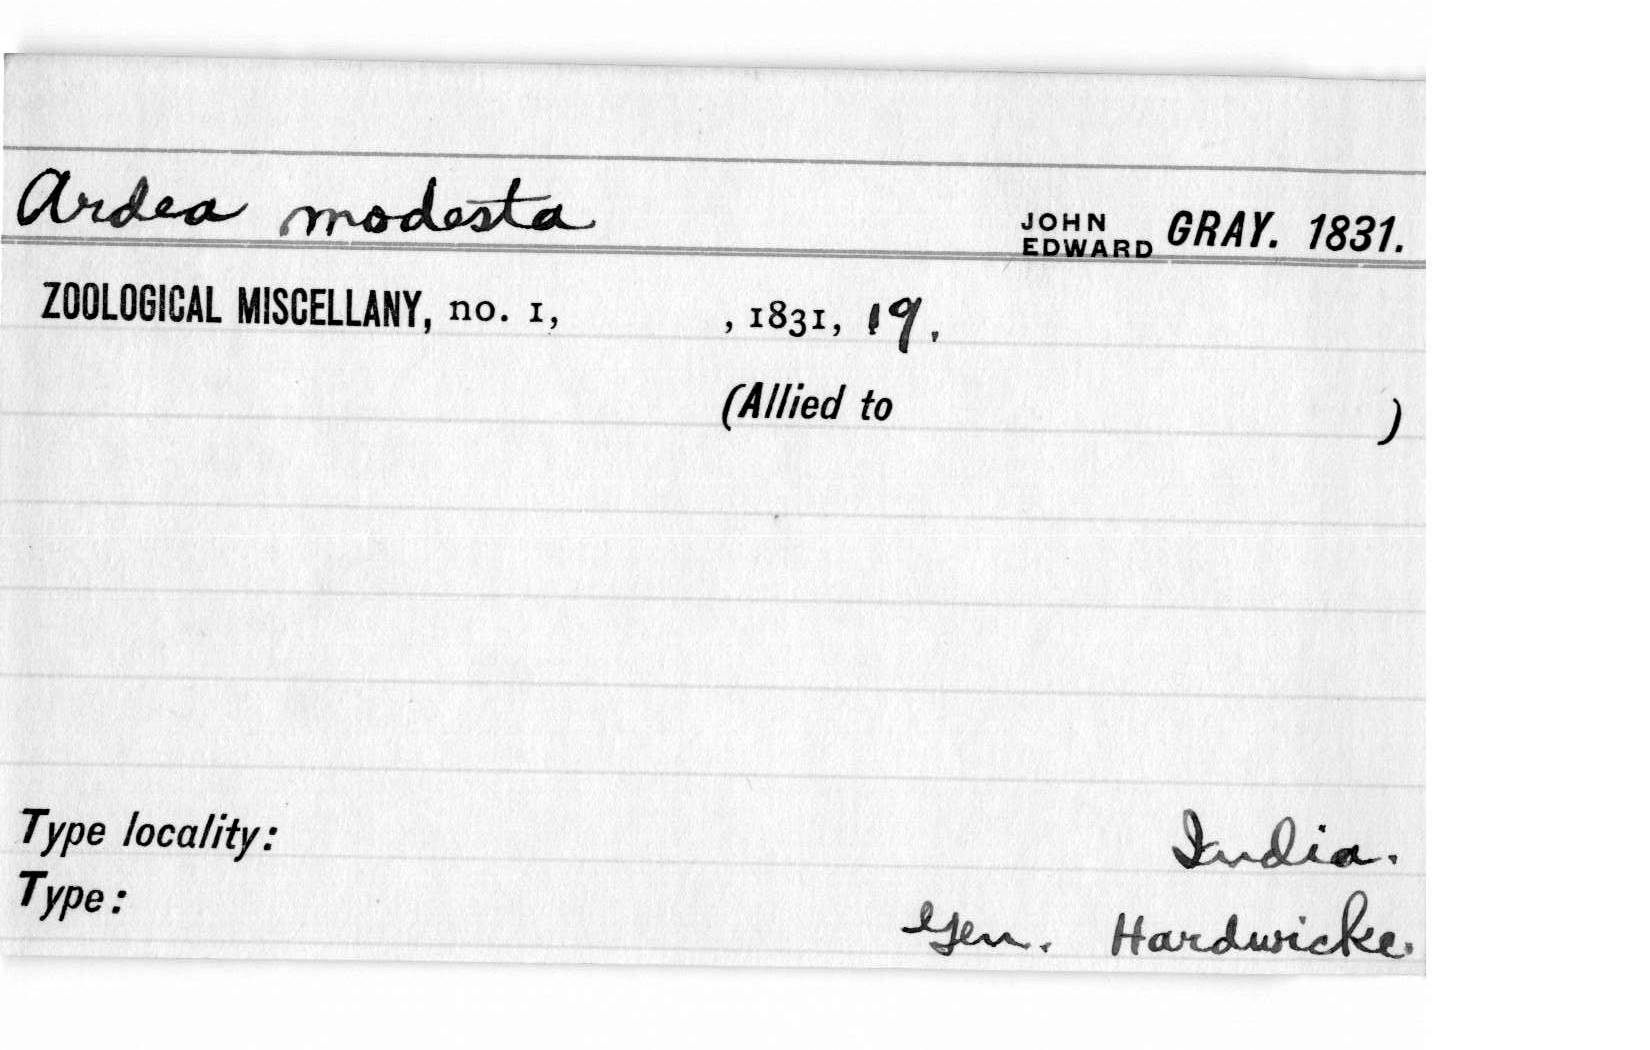 Ardea modesta JOHN EDWARD GRAY. 1831.
ZOOLOGICAL MISCELLANY, no. 1, , 1831, 19.
(Allied to )
Type locality: India.
Type: Gen. Hardwicke.